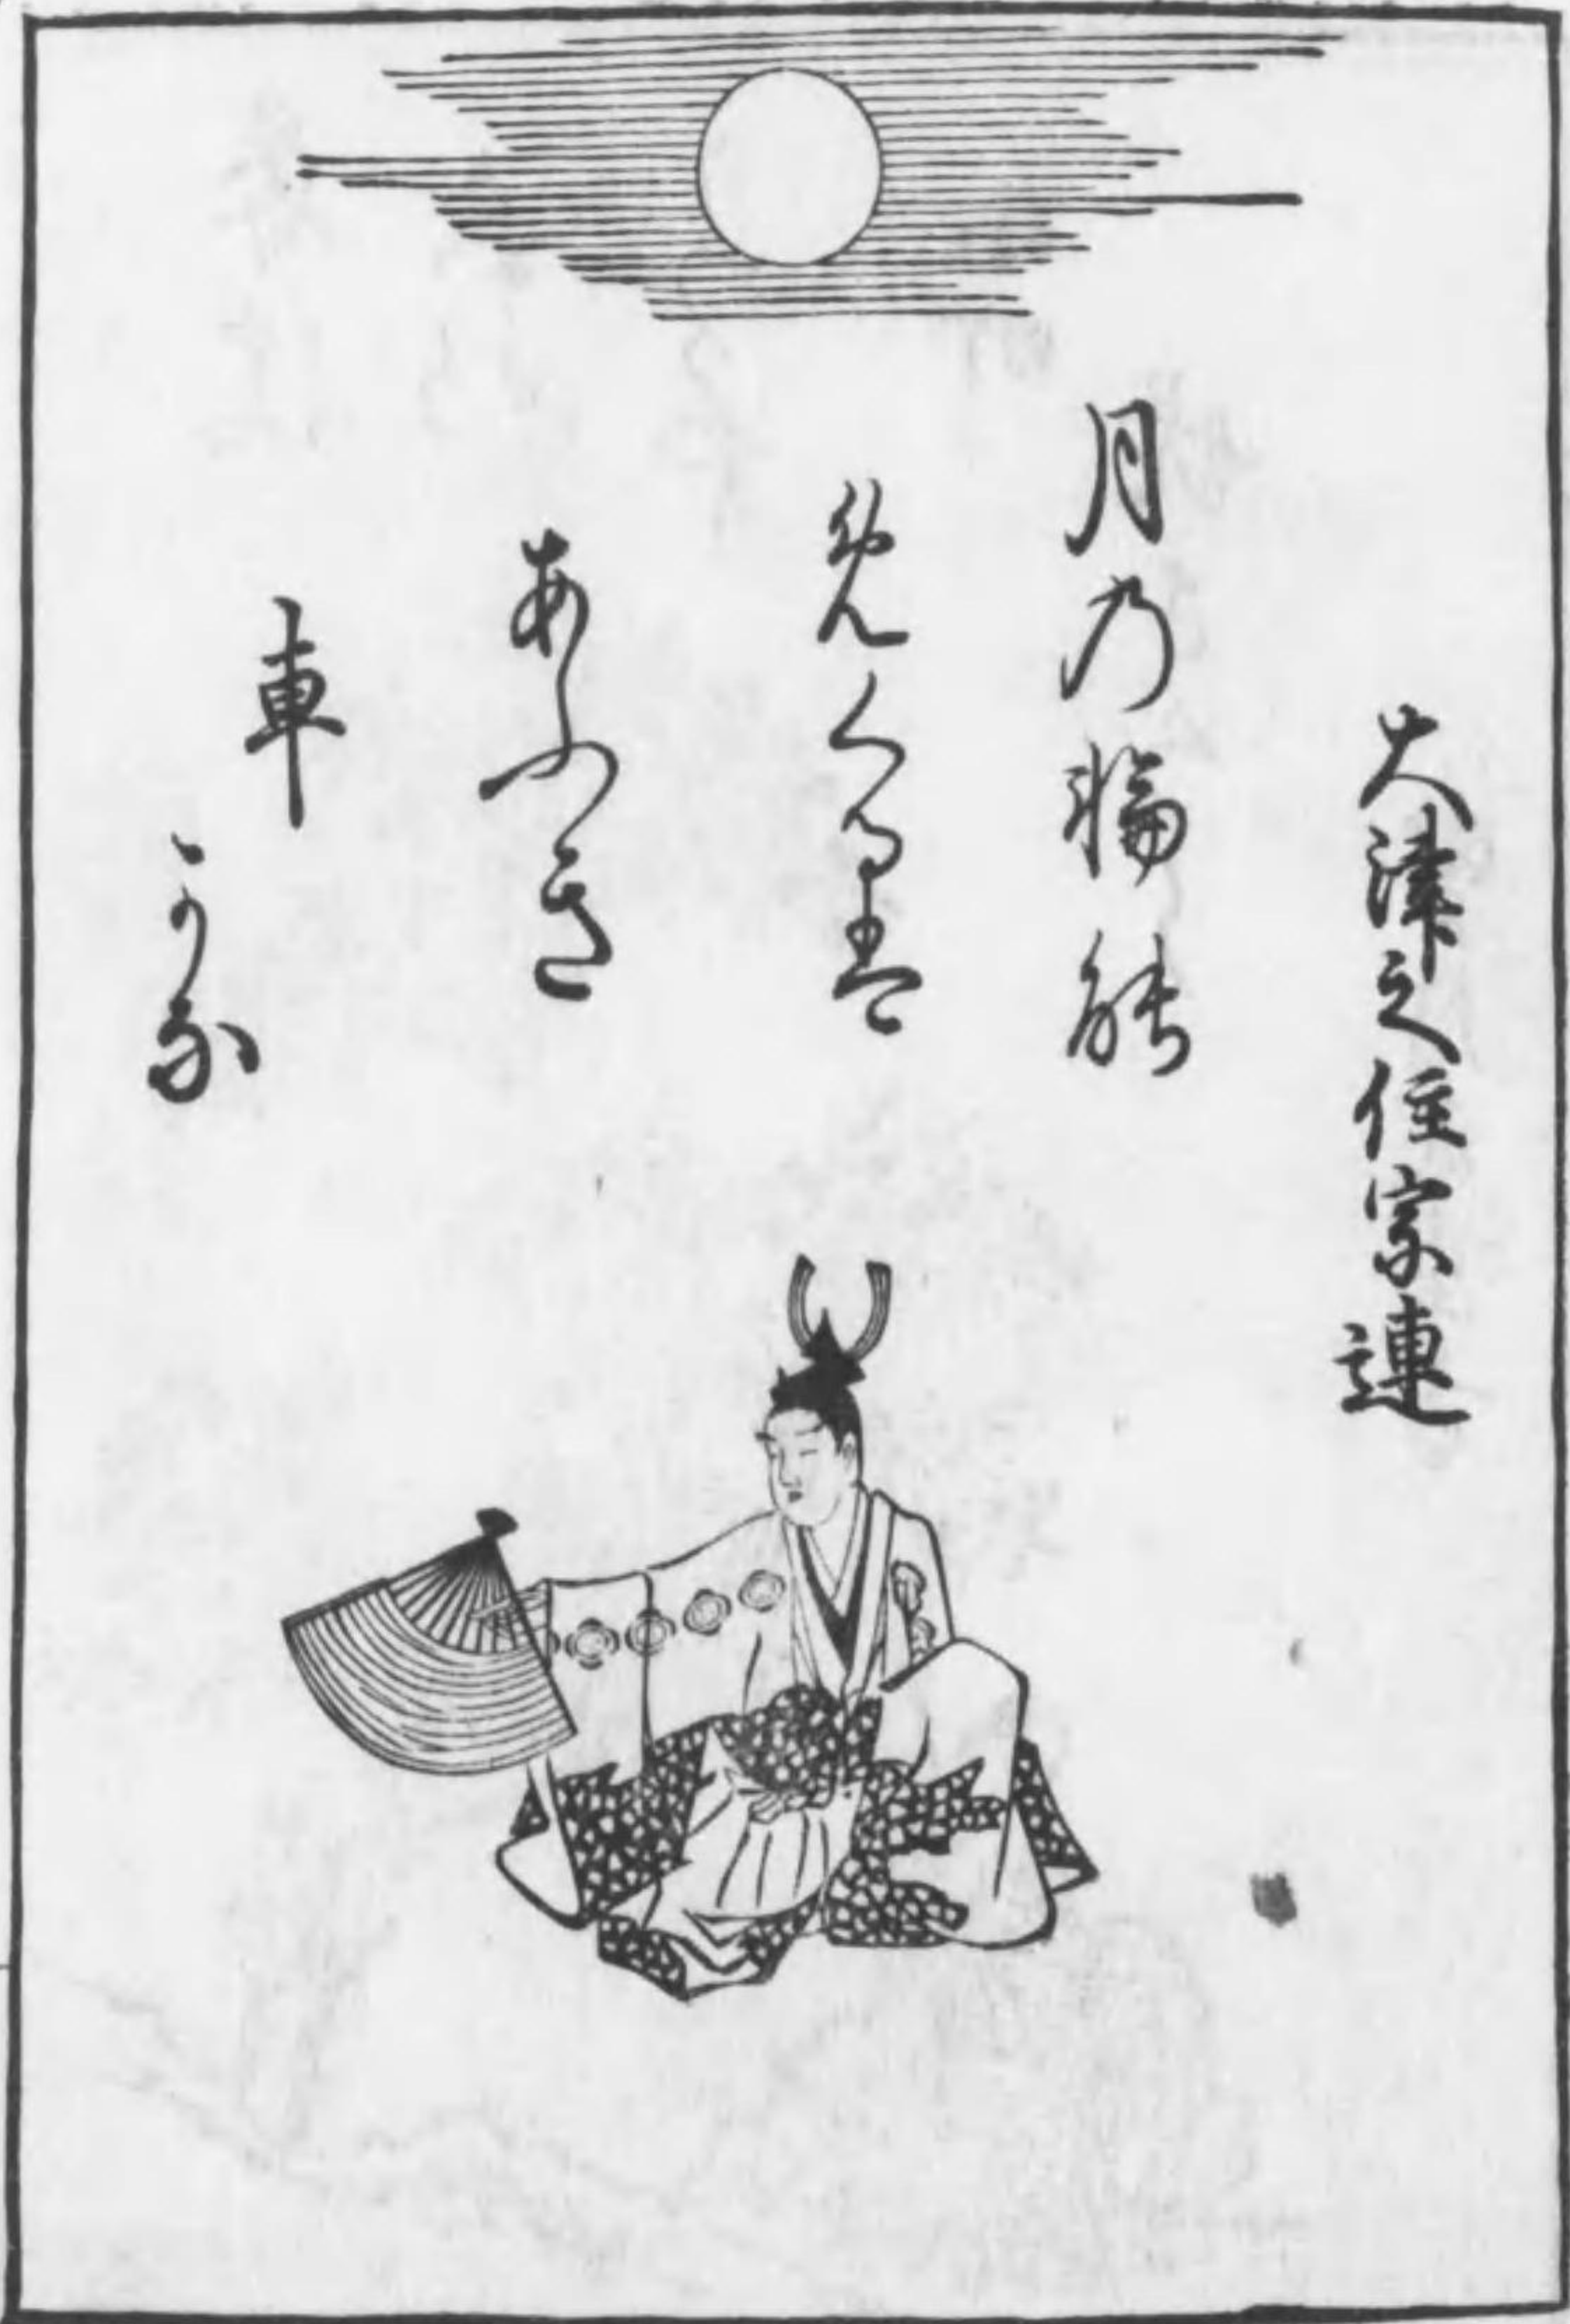 大津之住家連
月乃輪能
免くる盤
あふき
車
かな